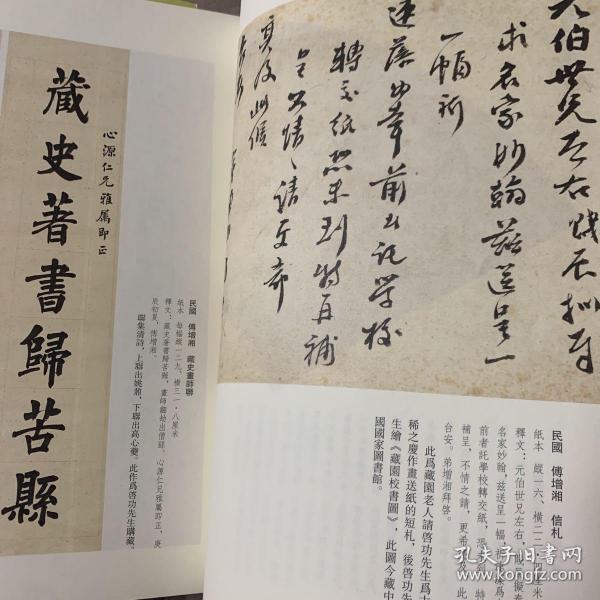 元伯世兄左右賤辰擬對
求名家妙翰茲送呈一
一幅祈
速落為幸前者託學校
轉交紙恐未到特再補
呈不情之請更希
台安
藏史著書歸苦縣
心源仁兄雅屬即正
民國 傅增湘 信札
紙本 縱一六、橫二二·四厘米
釋文：元伯世兄左右，賤辰擬
名家妙翰，茲送呈一幅，祈
前者託學校轉交紙，恐未到，特
補呈，不情之請，更希
台安。弟增湘拜啓。
此爲藏園老人請啓功先生爲
稀之慶作畫送紙的短札，後啓功先
生繪《藏園校書圖》，此圖今藏中
國國家圖書館。
民國 傅增湘 藏史畫師聯
紙本 每幅縱一二九、橫三一·八厘米
釋文：藏史著書歸苦縣，畫師
心源仁兄雅屬即正，庚
辰初夏，傅增湘。
聯集清詩，上聯出姚鼐，下聯出高心夔。此作爲啓功先生購藏。
孔夫子旧书网